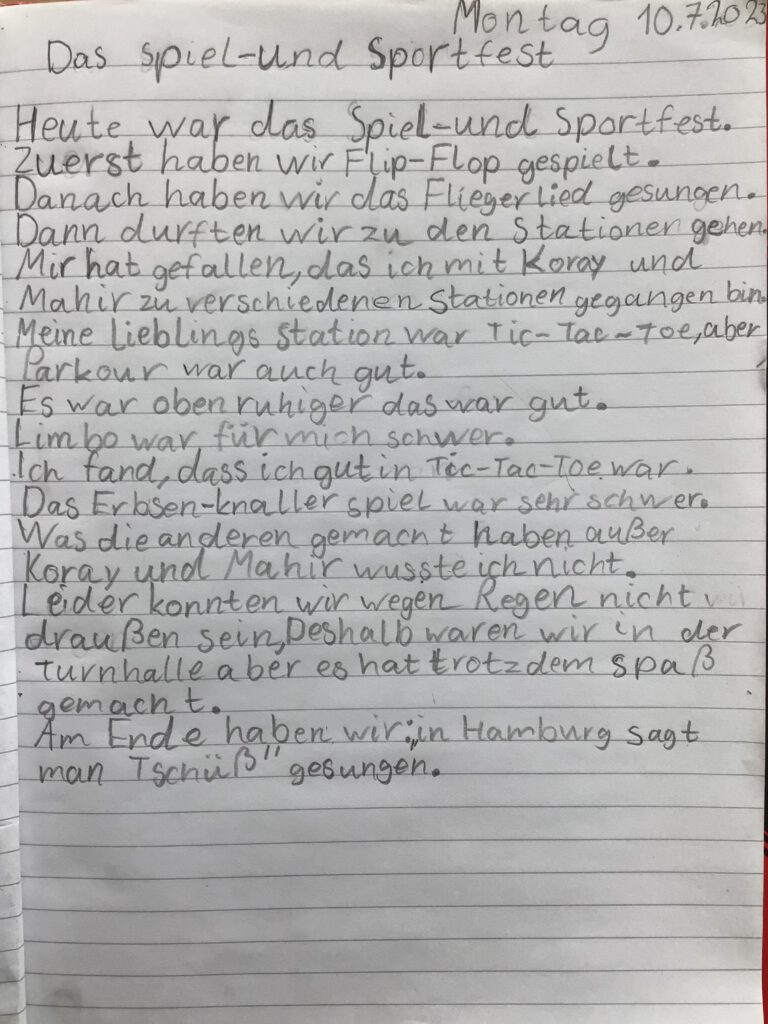 Montag 10.7.2023
Das Spiel-und Sportfest
Heute war das Spiel-und Sportfest.
Zuerst haben wir Flip-Flop gespielt.
Danach haben wir das Fliegerlied gesungen.
Dann durften wir zu den Stationen gehen.
Mir hat gefallen, das ich mit Koray und
Mahir zu verschiedenen Stationen gegangen bin.
Meine Lieblings Station war Tic-Tac-Toe, aber
Parkour war auch gut.
Es war oben ruhiger das war gut.
Limbo war für mich schwer.
Ich fand, dass ich gut in Tic-Tac-Toe war.
Das Erbsen-knaller spiel war sehr schwer.
Was die anderen gemacht haben außer
Koray und Mahir wusste ich nicht.
Leider konnten wir wegen Regen nicht
draußen sein, Deshalb waren wir in der
Turnhalle aber es hat trotzdem spaß
gemacht.
Am Ende haben wir:„in Hamburg sagt
man Tschüß" gesungen.